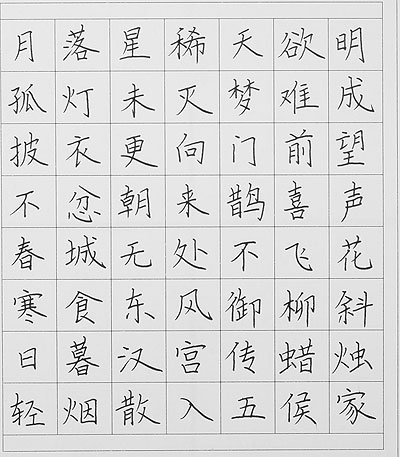 月落星稀天欲明
孤灯未灭梦难成
披衣更向门前望
不忿朝来鹊喜声
春城无处不飞花
寒食东风御柳斜
日暮汉宫传蜡烛
轻烟散入五侯家